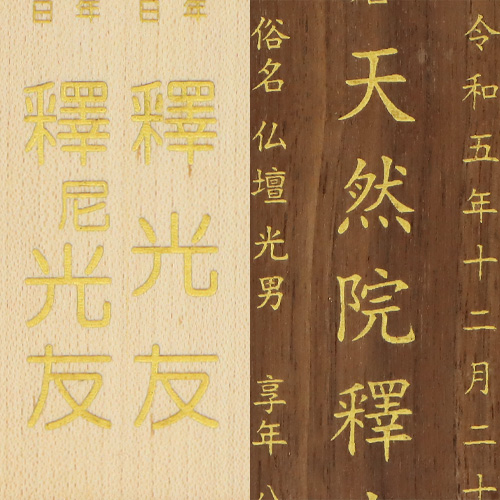 令和五年十二月二十
天然院釋
俗名 仏壇光男 享年八
年
釋光友
日
年
釋尼光友
日